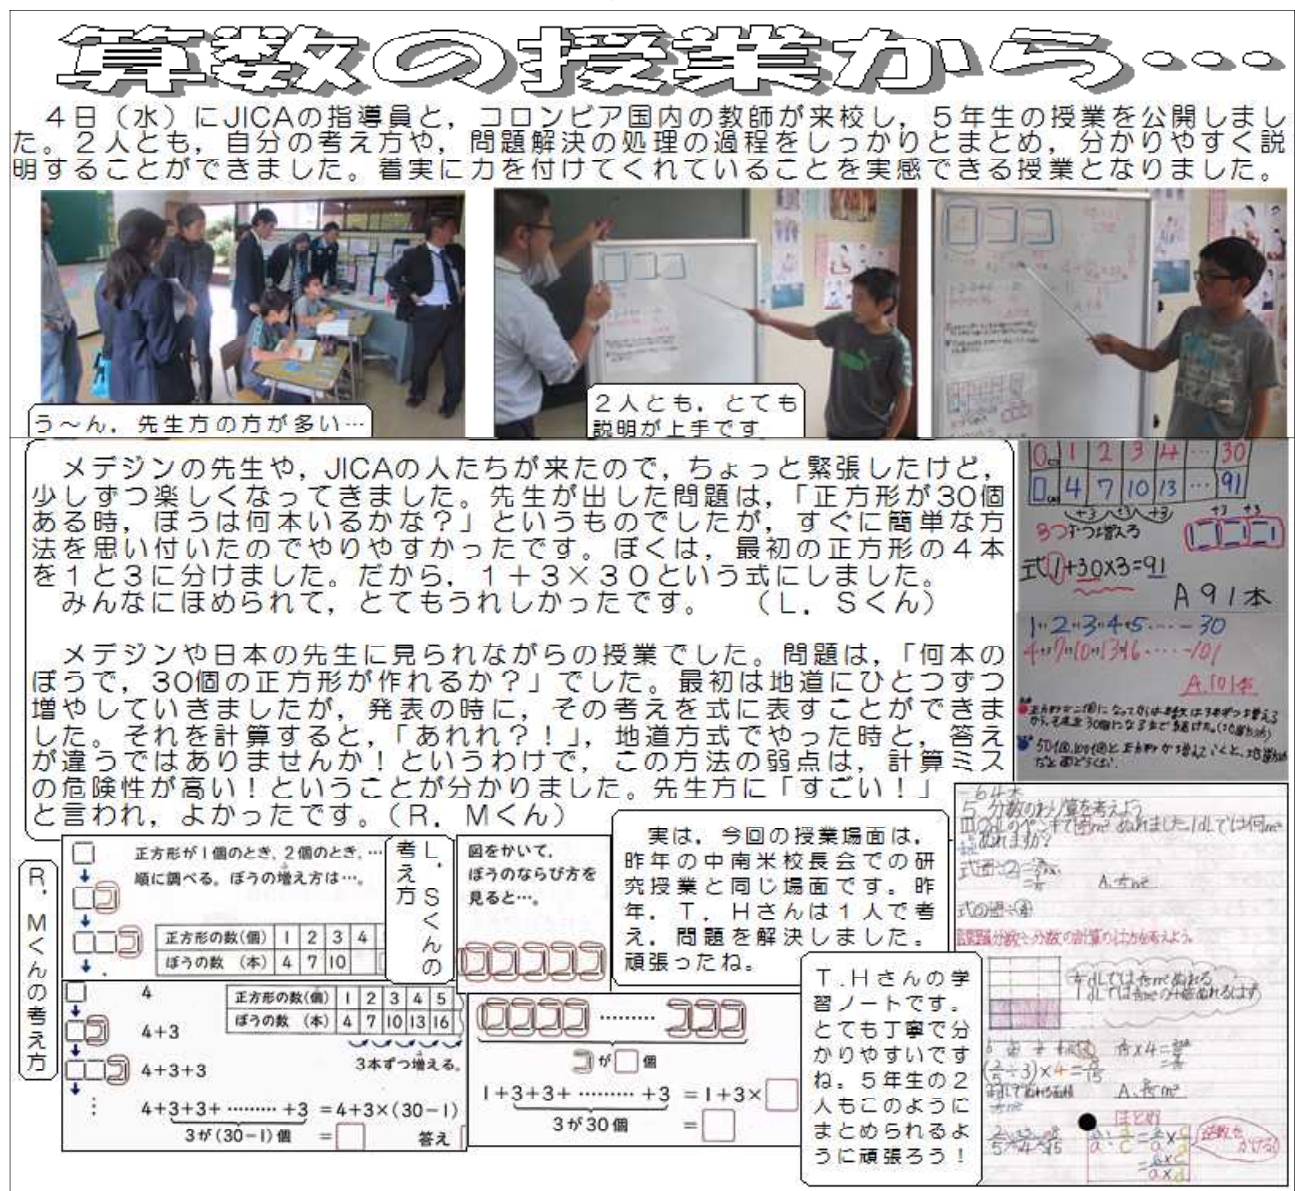 算数の授業から…
　４日（水）にJICAの指導員と，コロンビア国内の教師が来校し，５年生の授業を公開しまし
た。２人とも，自分の考え方や，問題解決の処理の過程をしっかりとまとめ，分かりやすく説
明することができました。着実に力を付けてくれていることを実感できる授業となりました。
う～ん，先生方の方が多い…
２人とも，とても
説明が上手です
　メデジンの先生や，JICAの人たちが来たので，ちょっと緊張したけど，
少しずつ楽しくなってきました。先生が出した問題は，「正方形が30個
ある時，ぼうは何本いるかな？」というものでしたが，すぐに簡単な方
法を思い付いたのでやりやすかったです。ぼくは，最初の正方形の４本
を１と３に分けました。だから，１＋３×３０という式にしました。
　みんなにほめられて，とてもうれしかったです。　（Ｌ．Ｓくん）
　メデジンや日本の先生に見られながらの授業でした。問題は，「何本の
ぼうで，30個の正方形が作れるか？」でした。最初は地道にひとつずつ
増やしていきましたが，発表の時に，その考えを式に表すことができま
した。それを計算すると，「あれれ？！」，地道方式でやった時と，答え
が違うではありませんか！というわけで，この方法の弱点は，計算ミス
の危険性が高い！ということが分かりました。先生方に「すごい！」
と言われ，よかったです。（Ｒ．Ｍくん）
1 2 3 4 … 30
4 7 10 13 … 91
+3 +3 +3
+3 +3
3つずつ増える
式1+30×3=91
A 91本
1 2 3 4 5 ‥‥ 30
4 7 10 13 16 ‥‥ 101
A.101本
Ｒ．Ｍくんの考え方
正方形が１個のとき，２個のとき，…
順に調べる。ぼうの増え方は…。
正方形の数（個） 1 2 3 4
ぼうの数　（本） 4 7 10
4
4+3
4+3+3
正方形の数（個） 1 2 3 4 5
ぼうの数　（本） 4 7 10 13 16
3本ずつ増える。
4+3+3+ ……… +3 =4+3×(30−1)
3が(30−1)個　=
答え
Ｌ．Ｓくんの
考え方
図をかいて，
ぼうのならび方を
見ると…。
………
が□個
1+3+3+ ……… +3 = 1+3×□
3が30個　=□
　実は，今回の授業場面は，
昨年の中南米校長会での研
究授業と同じ場面です。昨
年，Ｔ．Ｈさんは１人で考
え，問題を解決しました。
頑張ったね。
Ｔ．Ｈさんの学
習ノートです。
とても丁寧で分
かりやすいです
ね。５年生の２
人もこのように
まとめられるよ
うに頑張ろう！
分数のわり算を考えよう
まとめ